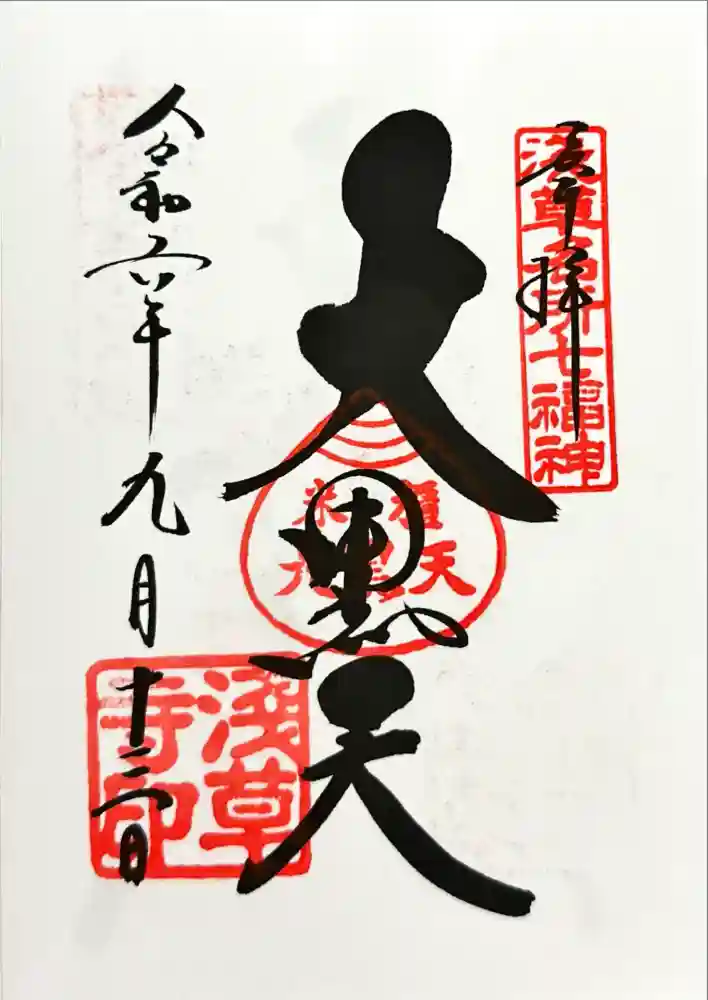 奉拝
浅草名所七福神
大黒天
淺草
寺印
令和六年九月十二日